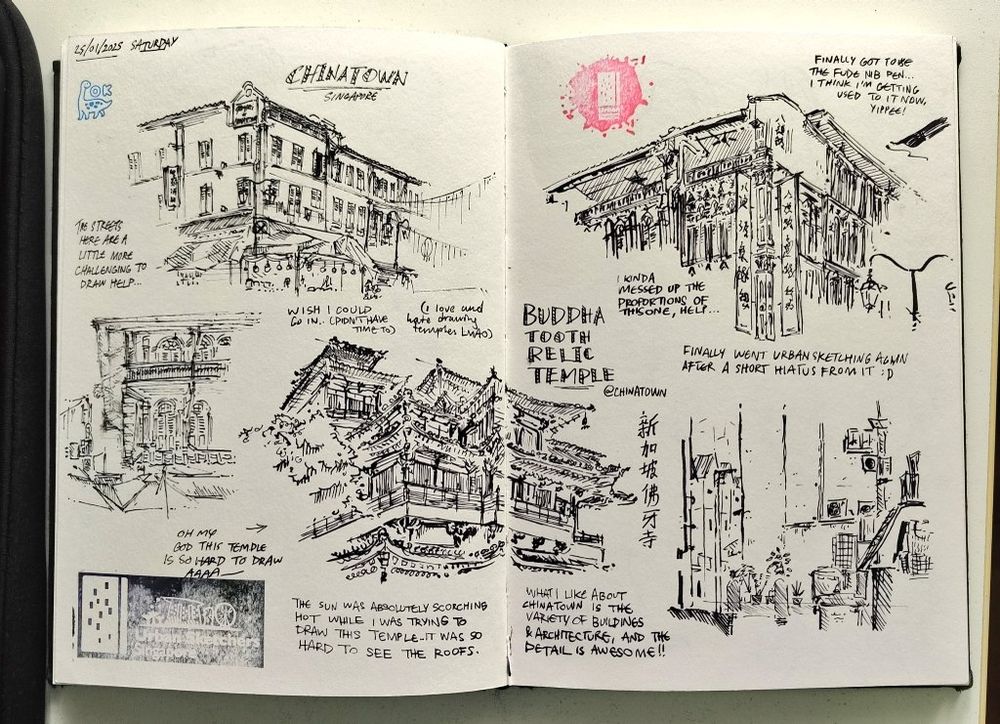 25/01/2025 SATURDAY
OK
CHINATOWN
SINGAPORE
THE STREETS
HERE ARE A
LITTLE MORE
CHALLENGING TO
DRAW HELP...
WISH I COULD
GO IN.. (DIDN'T HAVE
TIME TO)
(I love and
hate drawing
temples LMAO)
OH MY
GOD THIS TEMPLE
IS SO HARD TO DRAW
AAAA
Urban Sketchers
Singapore
THE SUN WAS ABSOLUTELY SCORCHING
HOT WHILE I WAS TRYING TO
DRAW THIS TEMPLE..IT WAS SO
HARD TO SEE THE ROOFS.
FINALLY GOT TO USE
THE FUDE NIB PEN...
I THINK I'M GETTING
USED TO IT NOW,
YIPPEE!
I KINDA
MESSED UP THE
PROPORTIONS OF
THIS ONE, HELP...
BUDDHA
TOOTH
RELIC
TEMPLE
@CHINATOWN
FINALLY WENT URBANSKETCHING AGAIN
AFTER A SHORT HIATUS FROM IT :D
新加坡佛牙寺
WHAT I LIKE ABOUT
CHINATOWN IS THE
VARIETY OF BUILDINGS
& ARCHITECTURE, AND THE
DETAIL IS AWESOME!!